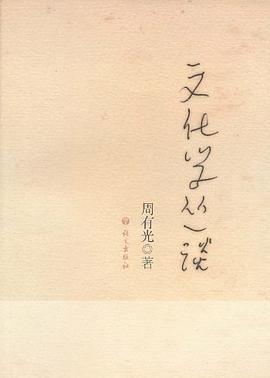 文化学丛谈
周有光◎著
语文出版社